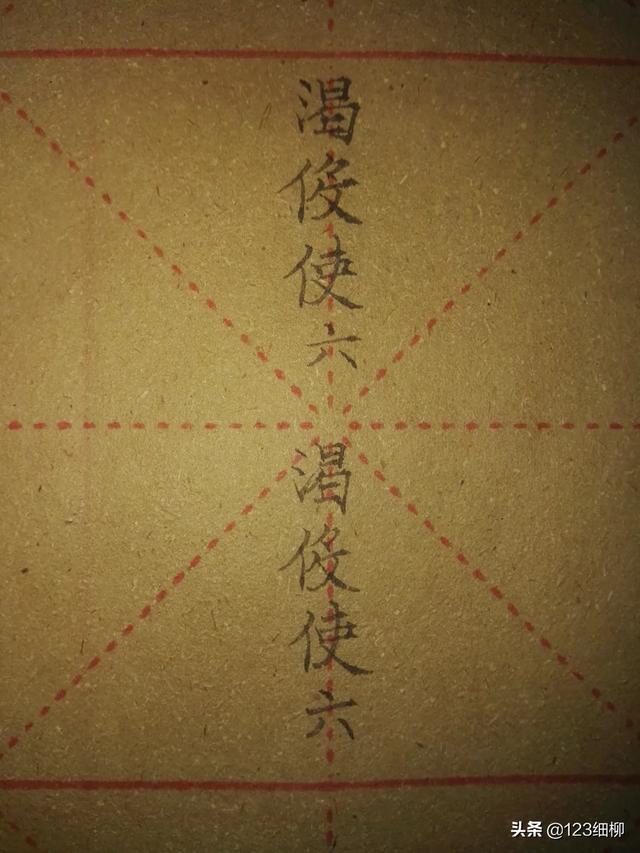 渴使六渴使六
头条 @123细柳